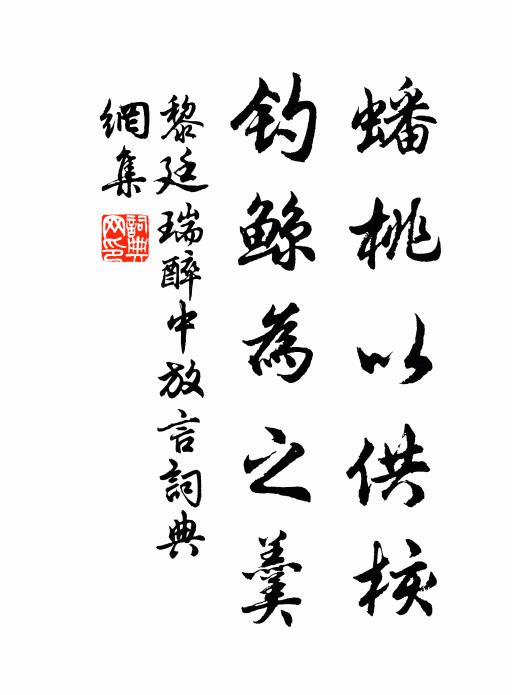 蟠桃以供核
釣鯨為之羹
黎廷瑞醉中放言詞典
網集
詞典网印